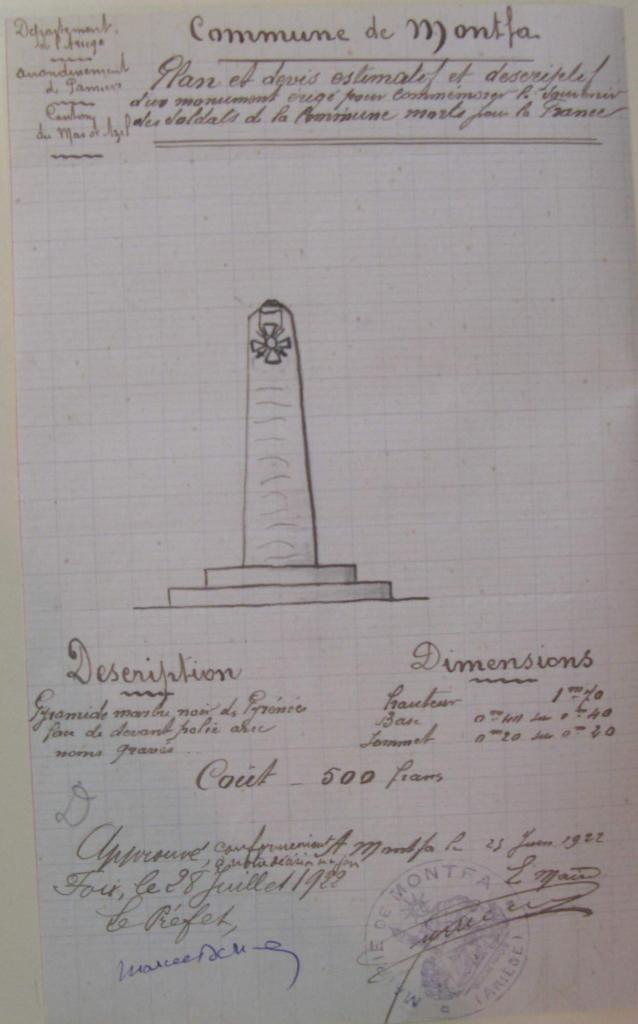 Département
de l'Ariège
arrondissement
de Pamiers
Canton
du Mas d'Azil
Commune de Montfa
Plan et devis estimatif et descriptif
d'un monument érigé pour commémorer le souvenir
des soldats de la Commune morts pour la France
Description
Pyramide marbre noir des Pyrénées
face de devant polie avec
noms gravés
Dimensions
hauteur 1m70
Base 0m40 sur 0m40
Sommet 0m20 sur 0m20
Coût - 500 francs
Approuvé, conformément
Foix, le 28 Juillet 1922
Le Préfet,
A Montfa le 25 Juin 1922
Le Maire
MAIRIE DE MONTFA
(ARIÈGE)